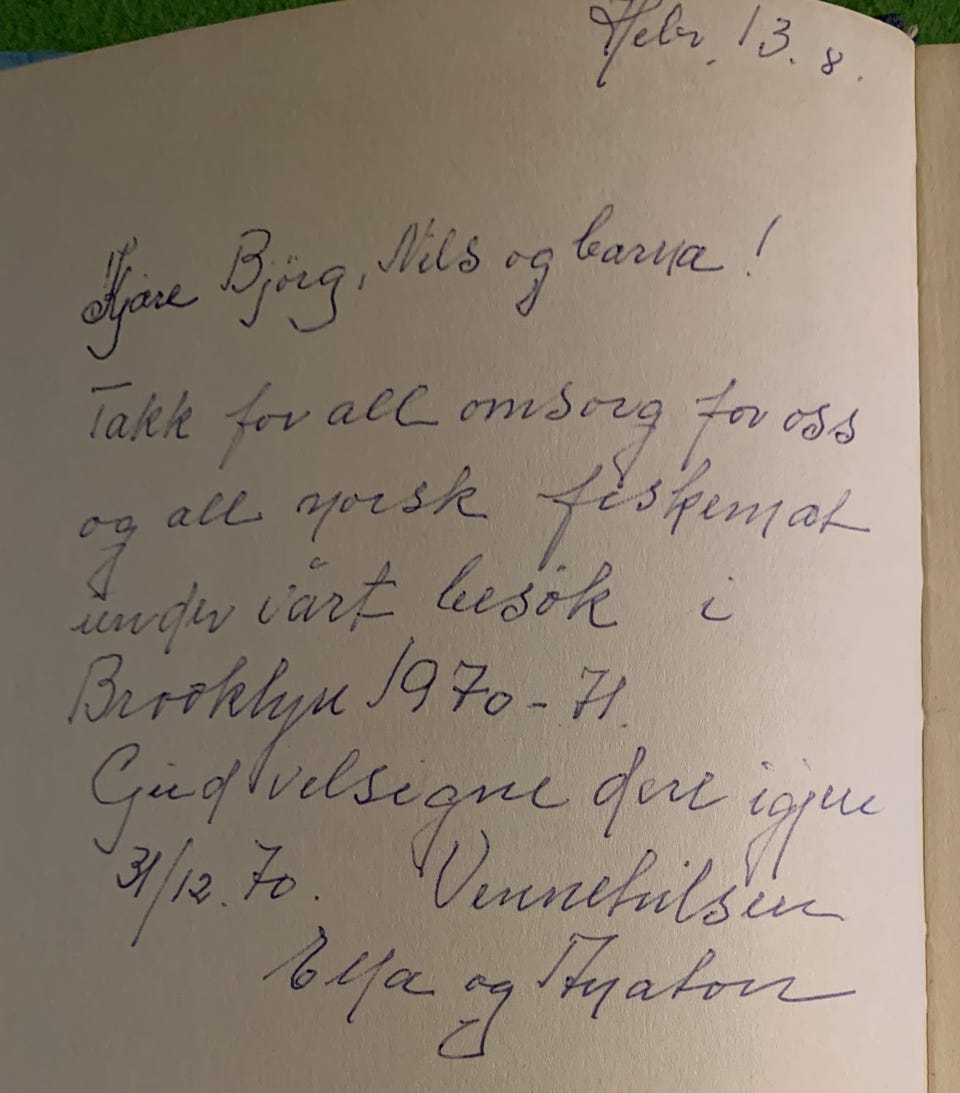 Hebr. 13. 8.
Kjære Bjørg, Nils og barna!
Takk for all omsorg for oss
og all norsk fiskemat
under vårt besök i
Brooklyn 1970-71.
Gud velsigne dere igjen
31/12.70. Vennehilsen
Ella og